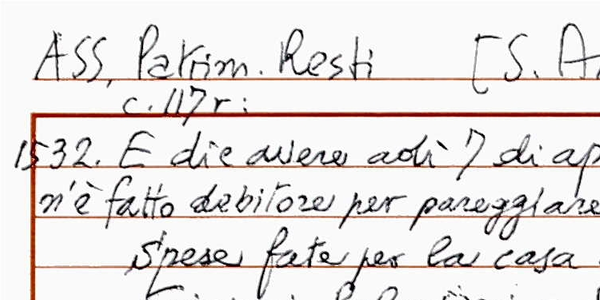 ASS, Patrim. Resti [S. A
c. 117r:
1532. E die avere adì 7 di ap
n'è fatto debitore per pareggiare
Spese fate per la casa